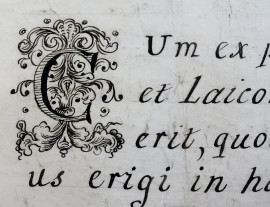 CUm ex p
et Laico
erit, quo
us erigi in h